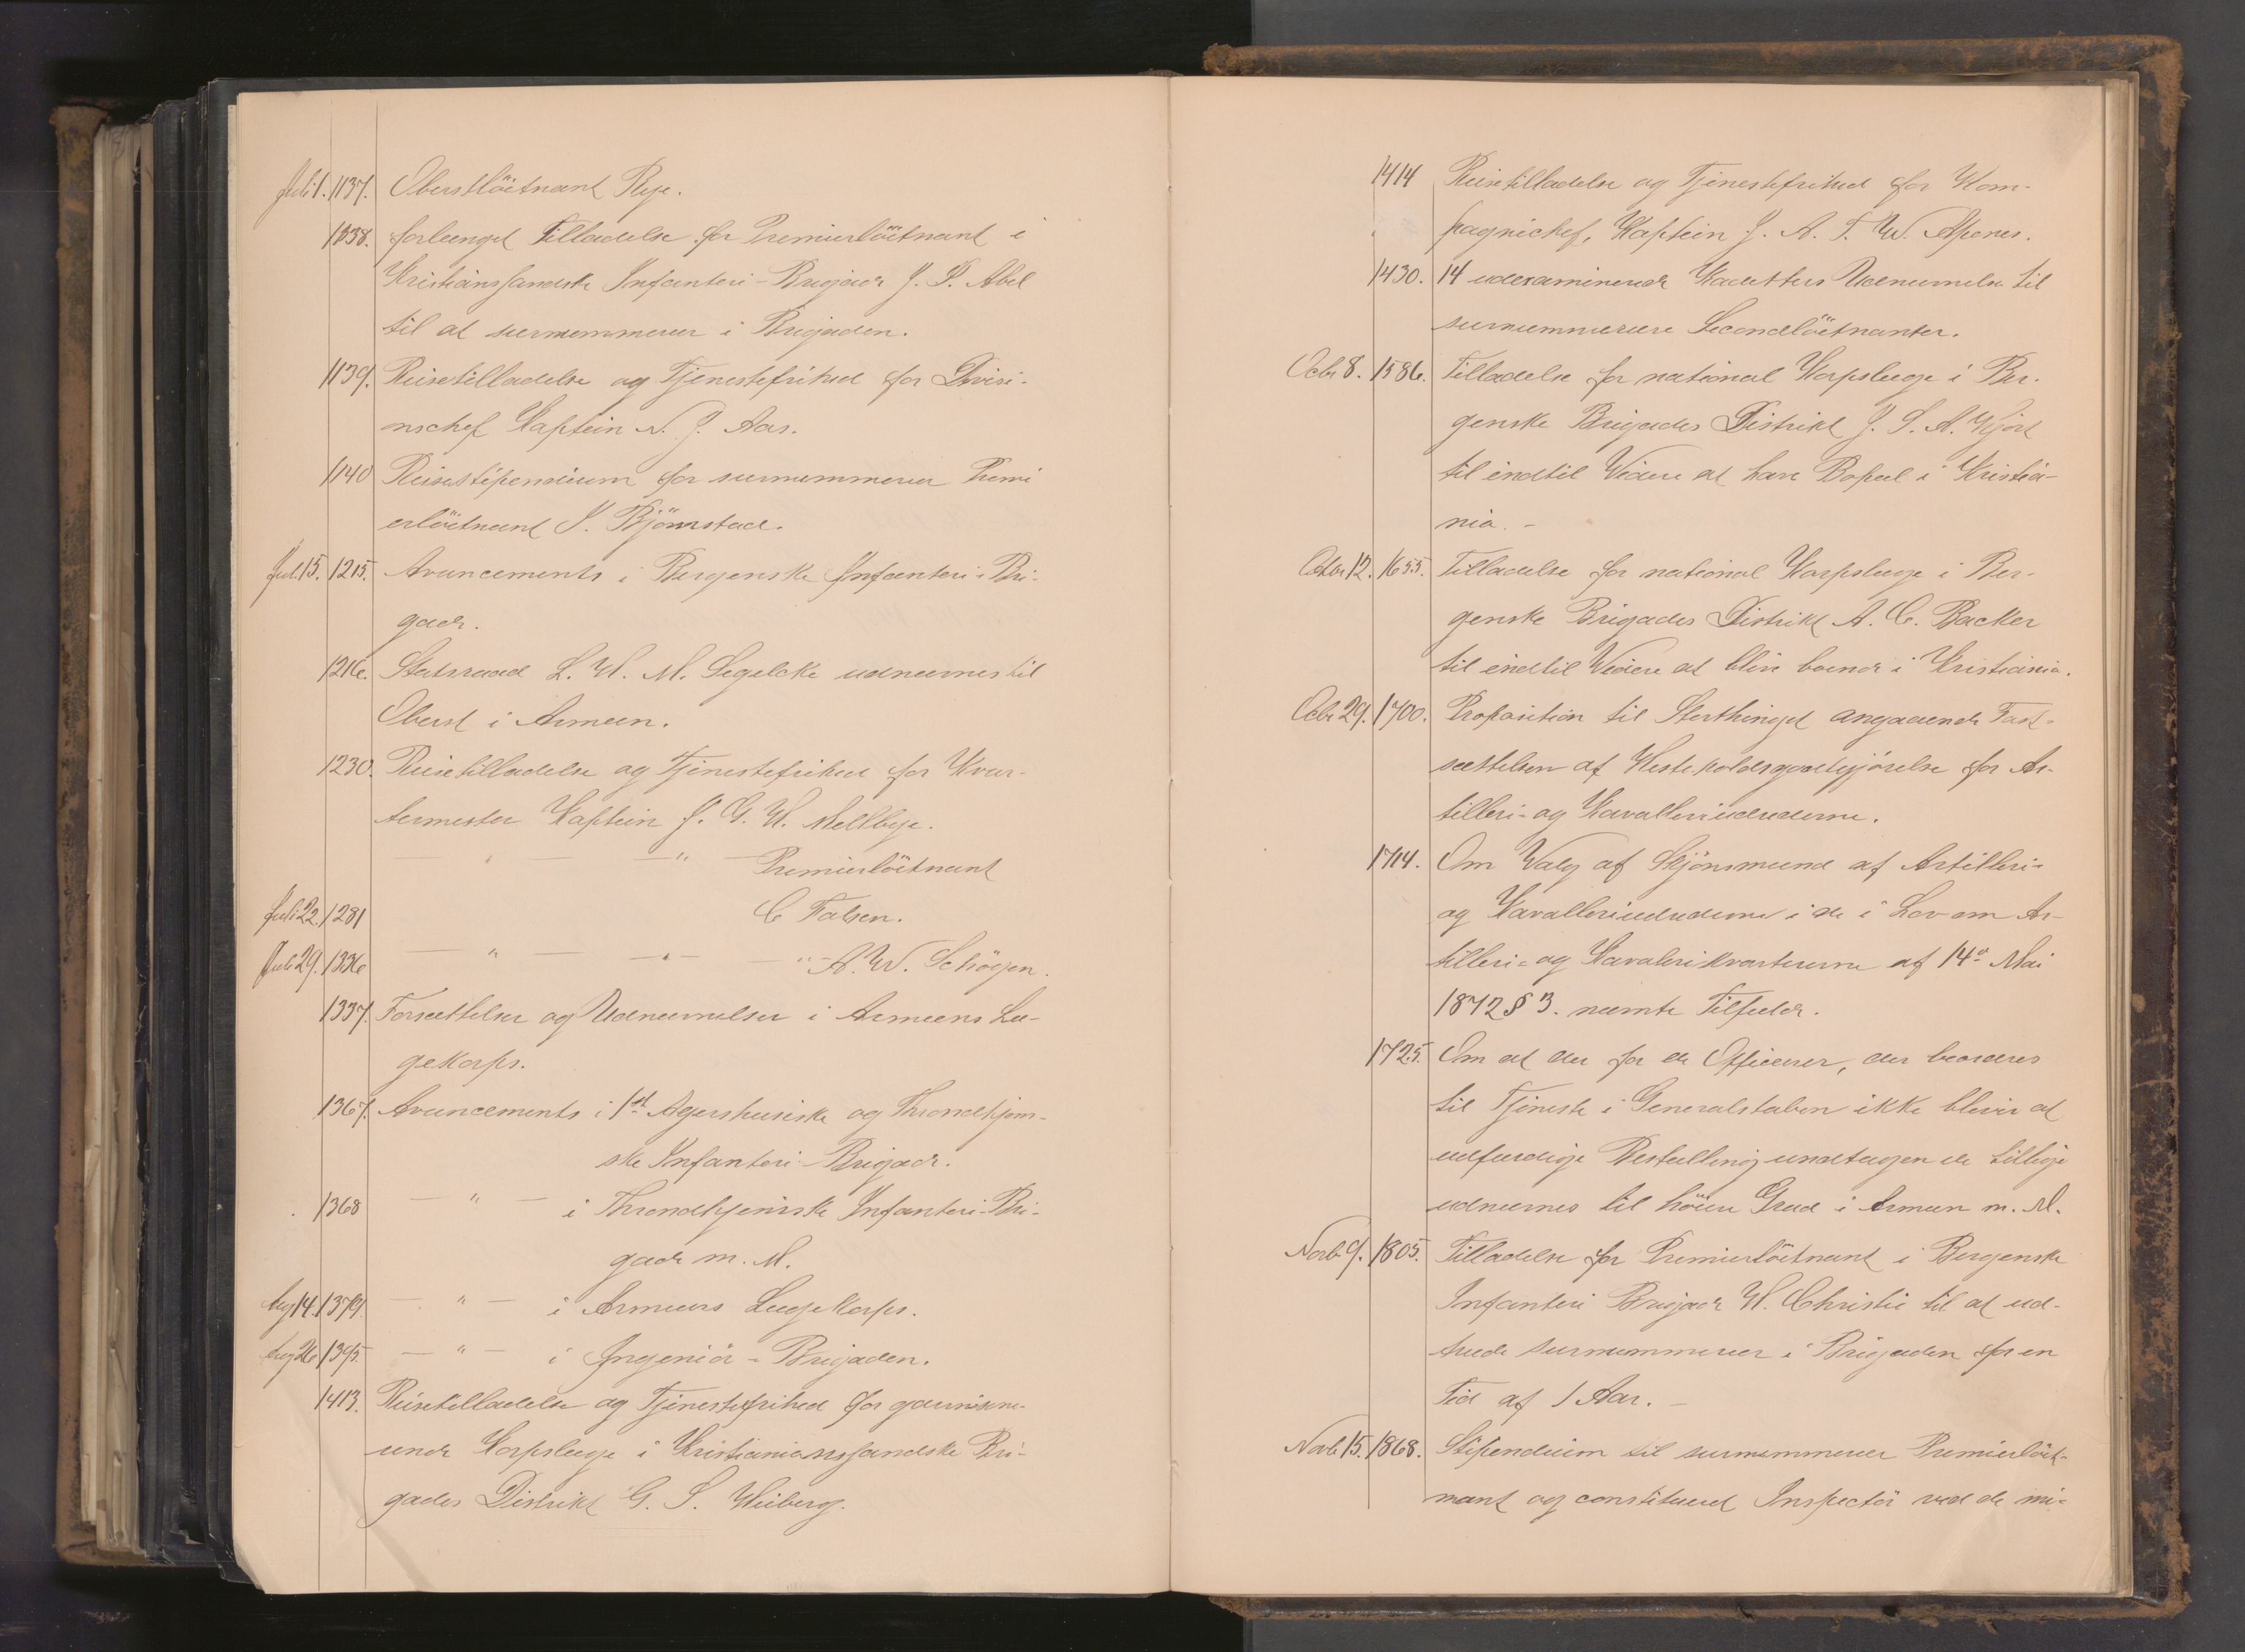 Juli 1. 1137. Oberstlöitnant Rye.
1138. forlænget Tilladelse for Premierlöitnant i
Kristianssandske Infanteri-Brigade J. P. Abel
til at surnummerær i Brigaden.
1139. Reisetilladelse og Tjenestefrihed for Divisi-
onschef Kaptein N. J. Aas.
1140 Reisestipendium for surnummerær Premi
erlöitnant J. Björnstad.
Jul. 15. 1215. Avancements i Bergenske Infanteri-Bri-
gade.
1216. Statsraad L. K. M. Segelcke udnævnes til
Oberst i Armeen.
1230. Reisetilladelse og Tjenestefrihed for Kvar-
termester Kaptein J. G. H. Mellbye.
— " — — " — Premierlöitnant
Juli 22. 1281 C Falsen.
Juli 29. 1336 — " — — " — " — A. W. Schöyen.
1337. Forsættelser og Udnævnelser i Armeens Læ-
gekorps.
1367. Avancements i 1st Agershusiske og Throndhjem-
ske Infanteri-Brigade.
1368 — " — i Throndhjemske Infanteri-Bri-
gade m. M.
Aug 14. 1379. — " — i Armeens Lægekorps.
Aug 26 1395. — " — i Ingeniör-Brigaden.
1413. Reisetilladelse og Tjenestefrihed for garnisone-
rende Korpslæge i Kristianianssandske Bri-
gades Distrikt G. S. Wiberg.
1414 Reisetilladelse og Tjenestefrihed for Kom-
pagnichef, Kaptein J. A. T. W. Apenes.
1430. 14 udexaminerede Kadetters Udnævnelse til
surnummerære Secondlöitnanter.
Octbr 8. 1586. Tilladelse for national Korpslæge i Ber-
genske Brigades Distrikt J. S. A. Hjort
til indtil Videre at have Bopæl i Kristia-
nia. —
Octbr 12. 1655. Tilladelse for national Korpslæge i Ber-
genske Brigades Distrikt A. C. Backer
til indtil Videre at blive boende i Kristiania.
Octbr 29. 1700. Proposition til Storthinget angaaende Fast-
sættelsen af Hesteholdsgodtgjörelse for Ar-
tilleri- og Kavalleriudruderne.
1714. Om Valg af Skjönsmænd af Artilleri-
og Kavalleriudruderne i de i Lov om Ar-
tilleri- og Kavalerikvartererne af 14de Mai
1872 § 3. nævnte Tilfælde.
1725. Om at der for de Officerer, der beordres
til Tjeneste i Generalstaben ikke bliver at
udfærdige Bestalling undtagen de tillige
udnævnes til höiere Grad i Armeen m. M.
Novb 9. 1805. Tilladelse for Premierlöitnant i Bergenske
Infanteri Brigade H. Christie til at ud-
træde surnummerær i Brigaden for en
Tid af 1 Aar. —
Novb 15. 1868. Stipendium til surnummerær Premierlöit-
nant og constitueret Inspectör ved de mi-